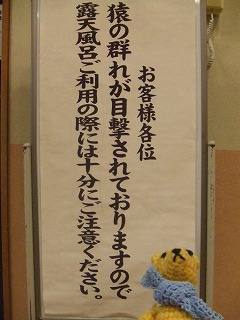 お客様各位
猿の群れが目撃されておりますので
露天風呂ご利用の際には十分にご注意ください。